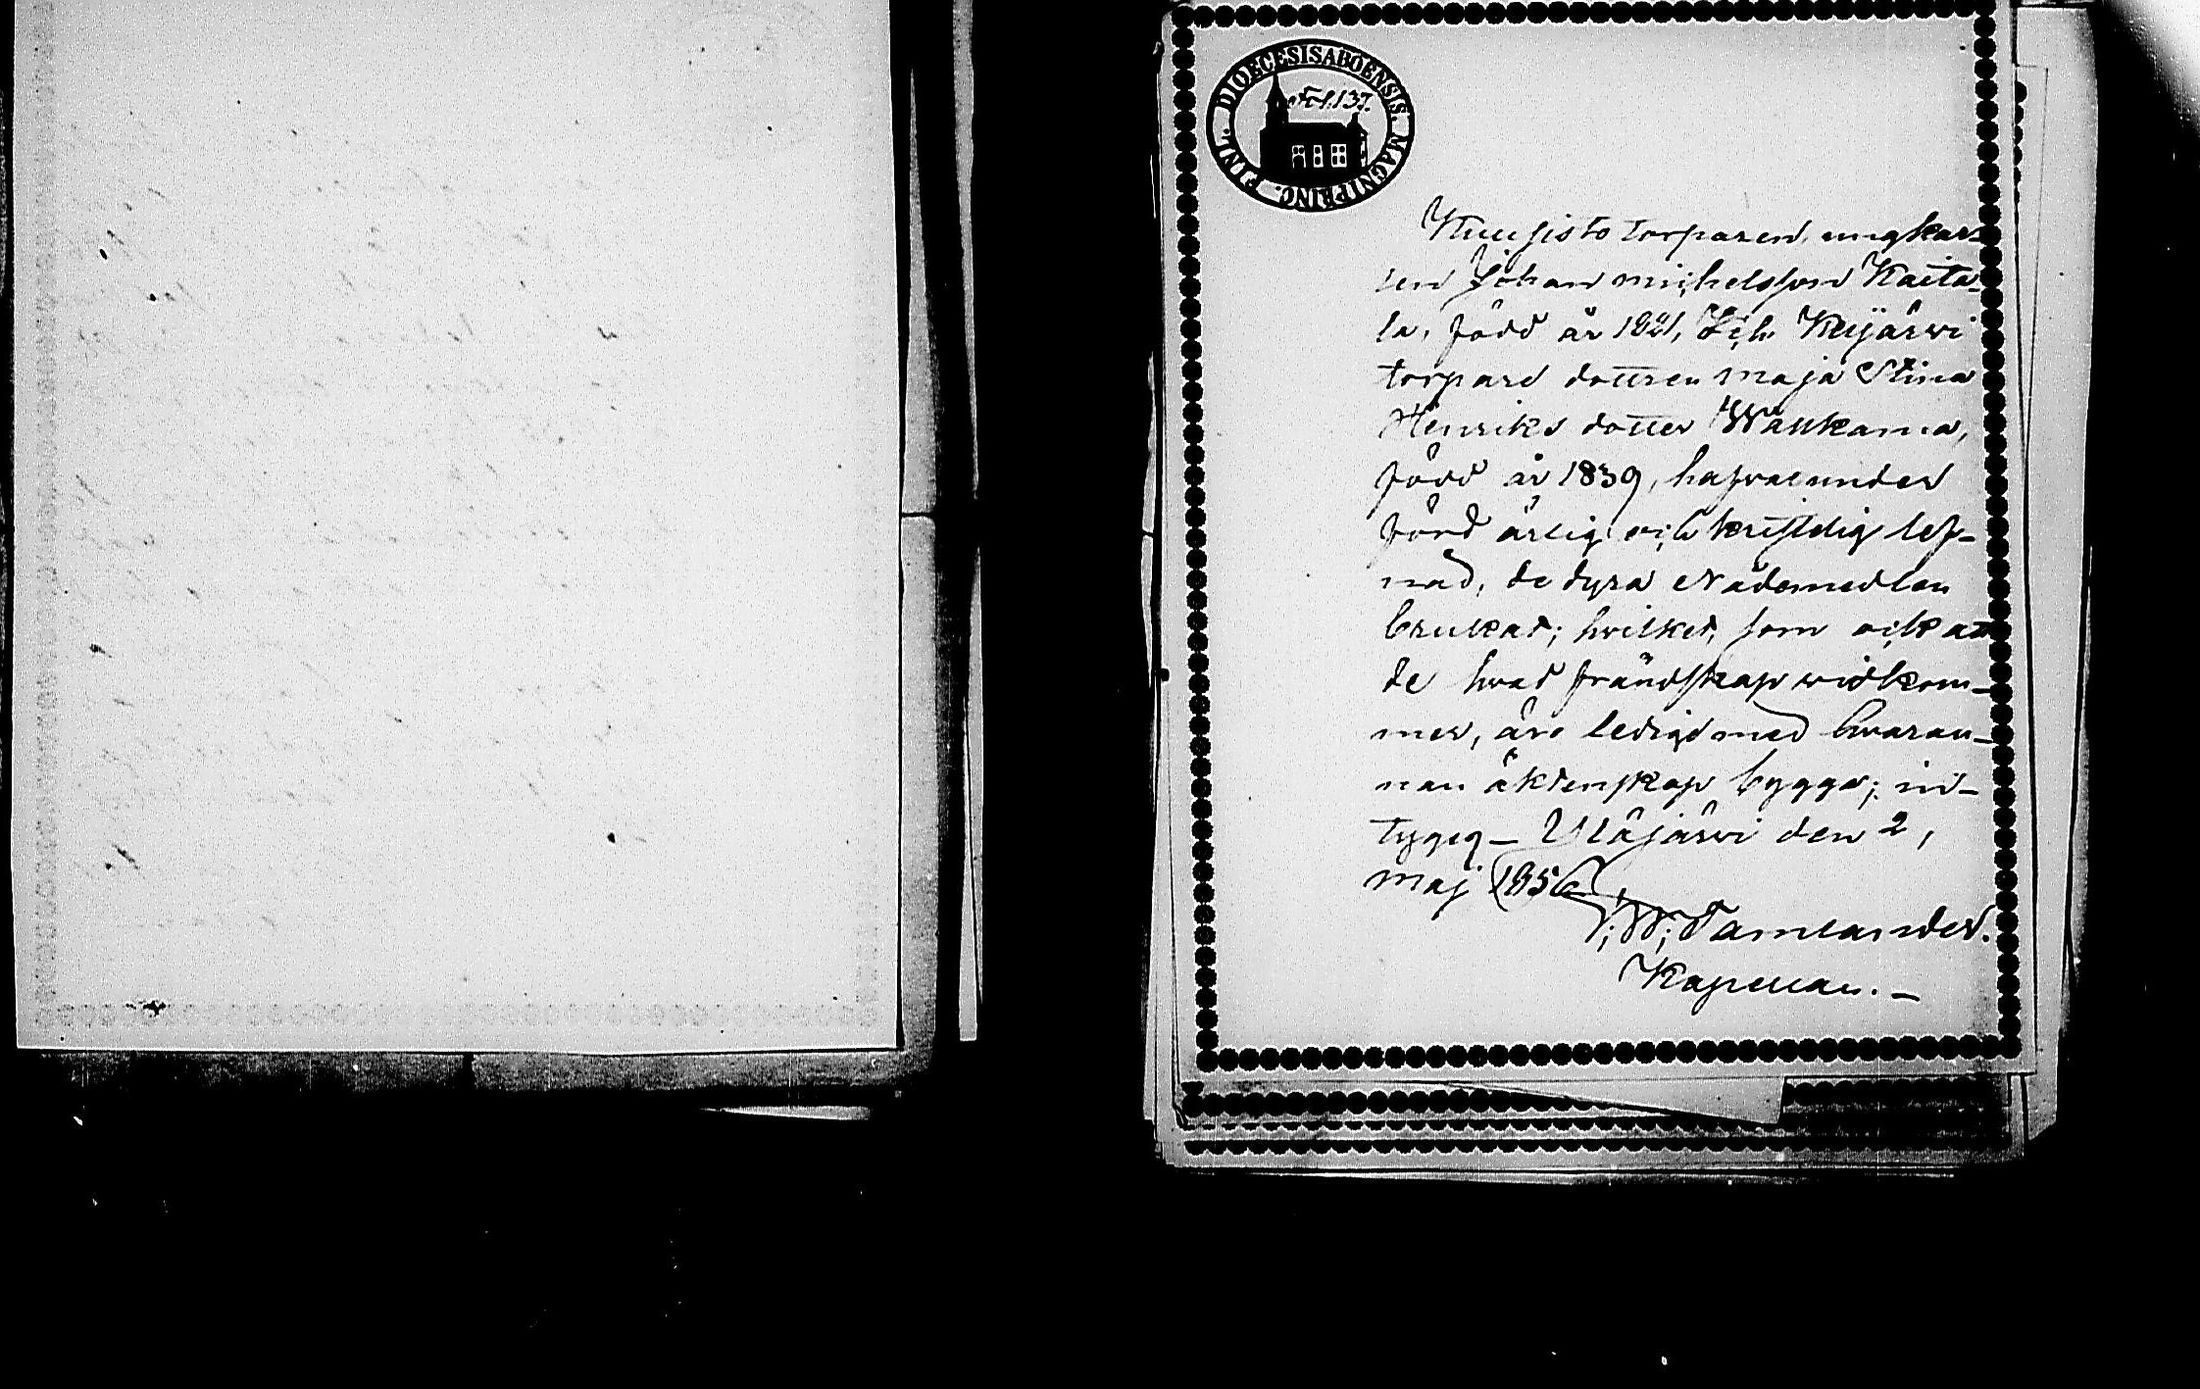 DIOECESIS ABOENSIS. MAGNI PRINC. FINL.
Fol. 137.
Kuusisto torparen, ungkar-
len Johan Michelsson Kaita-
la, född år 1821, och
torpare dottren Maja Stina
Henriks dotter
född år 1839, hafva under
förd ärlig och kristelig lef-
nad, de dyra Nådemedlen
brukat; hvilket, som ock at
de hvad frändskap widkom-
mer, äro ledige med hvaran-
nan äktenskap bygga; in-
tygeg – Ylājärwi den 2,
Maj 1856
Kapellan. –